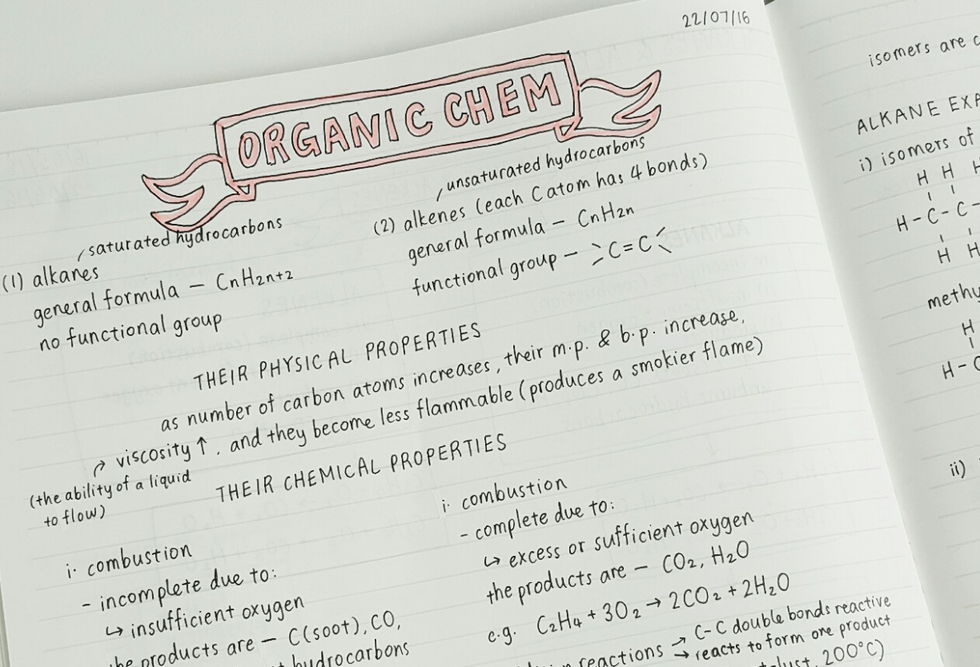 22/07/16
ORGANIC CHEM
saturated hydrocarbons
(1) alkanes
general formula – CnH2n+2
no functional group
unsaturated hydrocarbons
(2) alkenes (each C atom has 4 bonds)
general formula – CnH2n
functional group – >C=C<
THEIR PHYSICAL PROPERTIES
as number of carbon atoms increases, their m.p. & b.p. increase,
viscosity ↑, and they become less flammable (produces a smokier flame)
(the ability of a liquid
to flow)
THEIR CHEMICAL PROPERTIES
i. combustion
- incomplete due to:
↳ insufficient oxygen
the products are – C(soot), CO,
hydrocarbons
i. combustion
- complete due to:
↳ excess or sufficient oxygen
the products are – CO2, H2O
e.g. C2H4 + 3O2 → 2CO2 + 2H2O
reactions → C-C double bonds reactive
→ reacts to form one product
200°C)
isomers are
ALKANE
i) isomers of
H H H
H-C-C-
H H
H
H-C
ii)